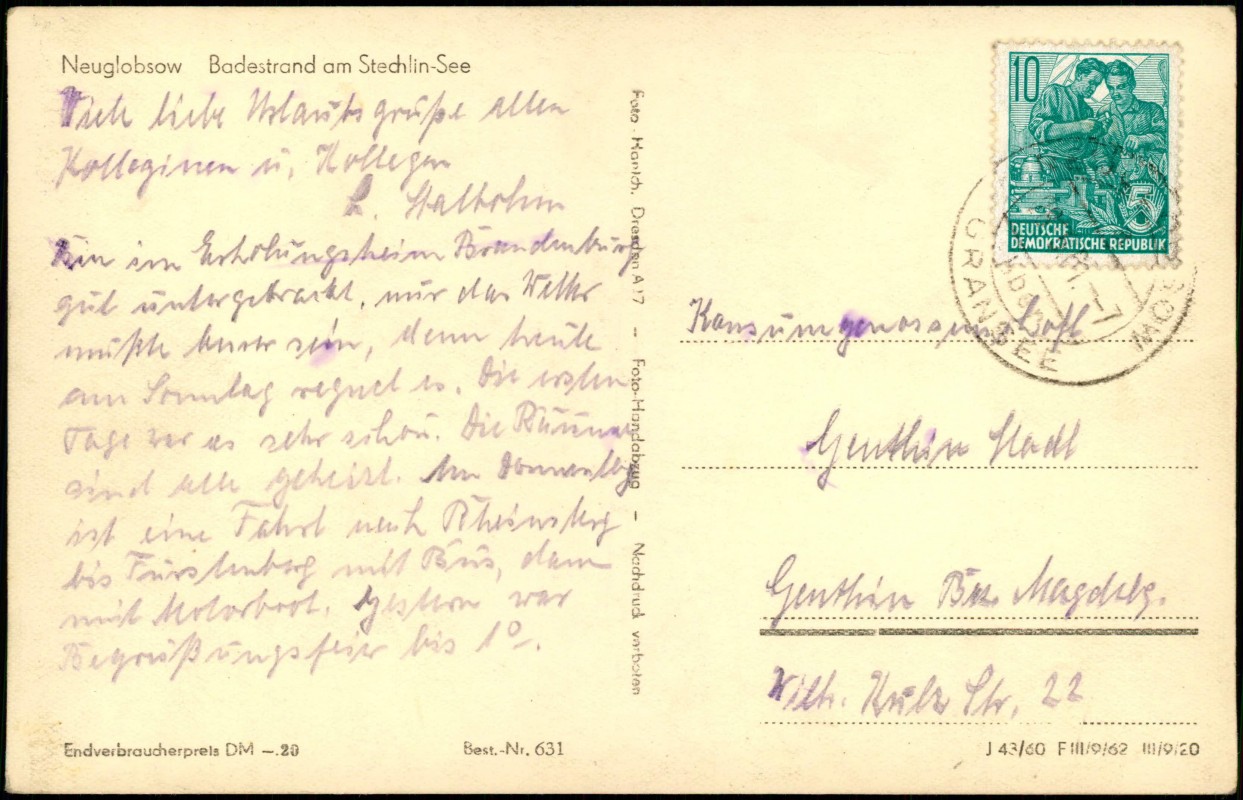 Neuglobsow Badestrand am Stechlin-See
Viele liebe Urlaubsgrüße allen
Kolleginen u. Kollegen
Bin im Erholungsheim Brandenburg
gut untergebracht, nur das Wetter
müßte besser sein, denn heute
am Sonntag regnet es. Die ersten
Tage war es sehr schön. Die Räume
sind alle geheizt. Am Donnerstag
ist eine Fahrt nach Rheinsberg
bis Fürstenberg mit Bus, dann
mit Motorboot. Gestern war
Begrüßungsfeier bis 1⁰.
Endverbraucherpreis DM –.20
Best.-Nr. 631
Foto-Hanich, Dresden A 17 – Foto-Handabzug – Nachdruck verboten
10
5
DEUTSCHE
DEMOKRATISCHE REPUBLIK
GRANSEE
Konsumgenossenschaft
Genthin Stadt
Genthin Bez. Magdbg.
Wilh. Külz Str. 22
J 43/60 F III/9/62 III/9/20